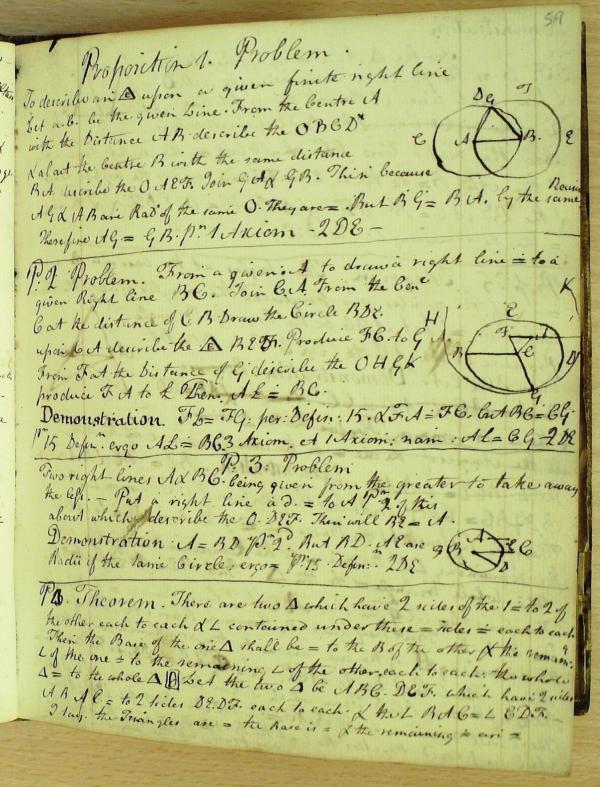 59
Proposition 1. Problem.
To describe an △ upon a given finite right line
Let a.b. be the given Line. From the Centre A
with the Distance AB describe the O BCD
& al at the Centre B with the same distance
BA describe the O AEF. Join GA & GB. Then because
AG & AB are Rad.s of the same O. They are =. But BG = BA. by the same
Therefore AG = GB. pr 1 Axiom - 2DE -
P. 2 Problem. From a given . A to draw a right line = to a
given Right line BC. Join CA From the Cen
C at the distance of CB Draw the Circle BDE.
upon CA describe the △ Produce FC. to G
From F at the Distance of G describe the O HGK
produce FA to L Then. AL = BC.
Demonstration. FL = FG: per: Defin: 15. & FA = FC. BC = CG
pr 15 Defin: ergo AL = BC 3 Axiom, et 1 Axiom: nam: AL = CG - 2DE
P. 3: Problem
Two right lines A & BC. being given from the greater to take away
the less. - Put a right line a d. = to A pr 2 of this
above which describe the O. DEF. Then will BE = A.
Demonstration: A = BD pr 2d. But BD. AE are
Radii of the same Circle; ergo = pr 15 Defin: 2DE
P 4. Theorem. There are two △ which have 2 sides of the 1 = to 2 of
the other each to each & L contained under these = sides = each to each
Then the Base of the one △ shall be = to the B of the other & the remain:
L of the one = to the remaining L of the other each to each: the whole
△ = to the whole △ Let the two △ be ABC. DEF. which have 2 sides
AB AC = to 2 sides DE. DF. each to each. & the L BAC = L EDF.
I say the Triangles are = the Base is = & the remaining =